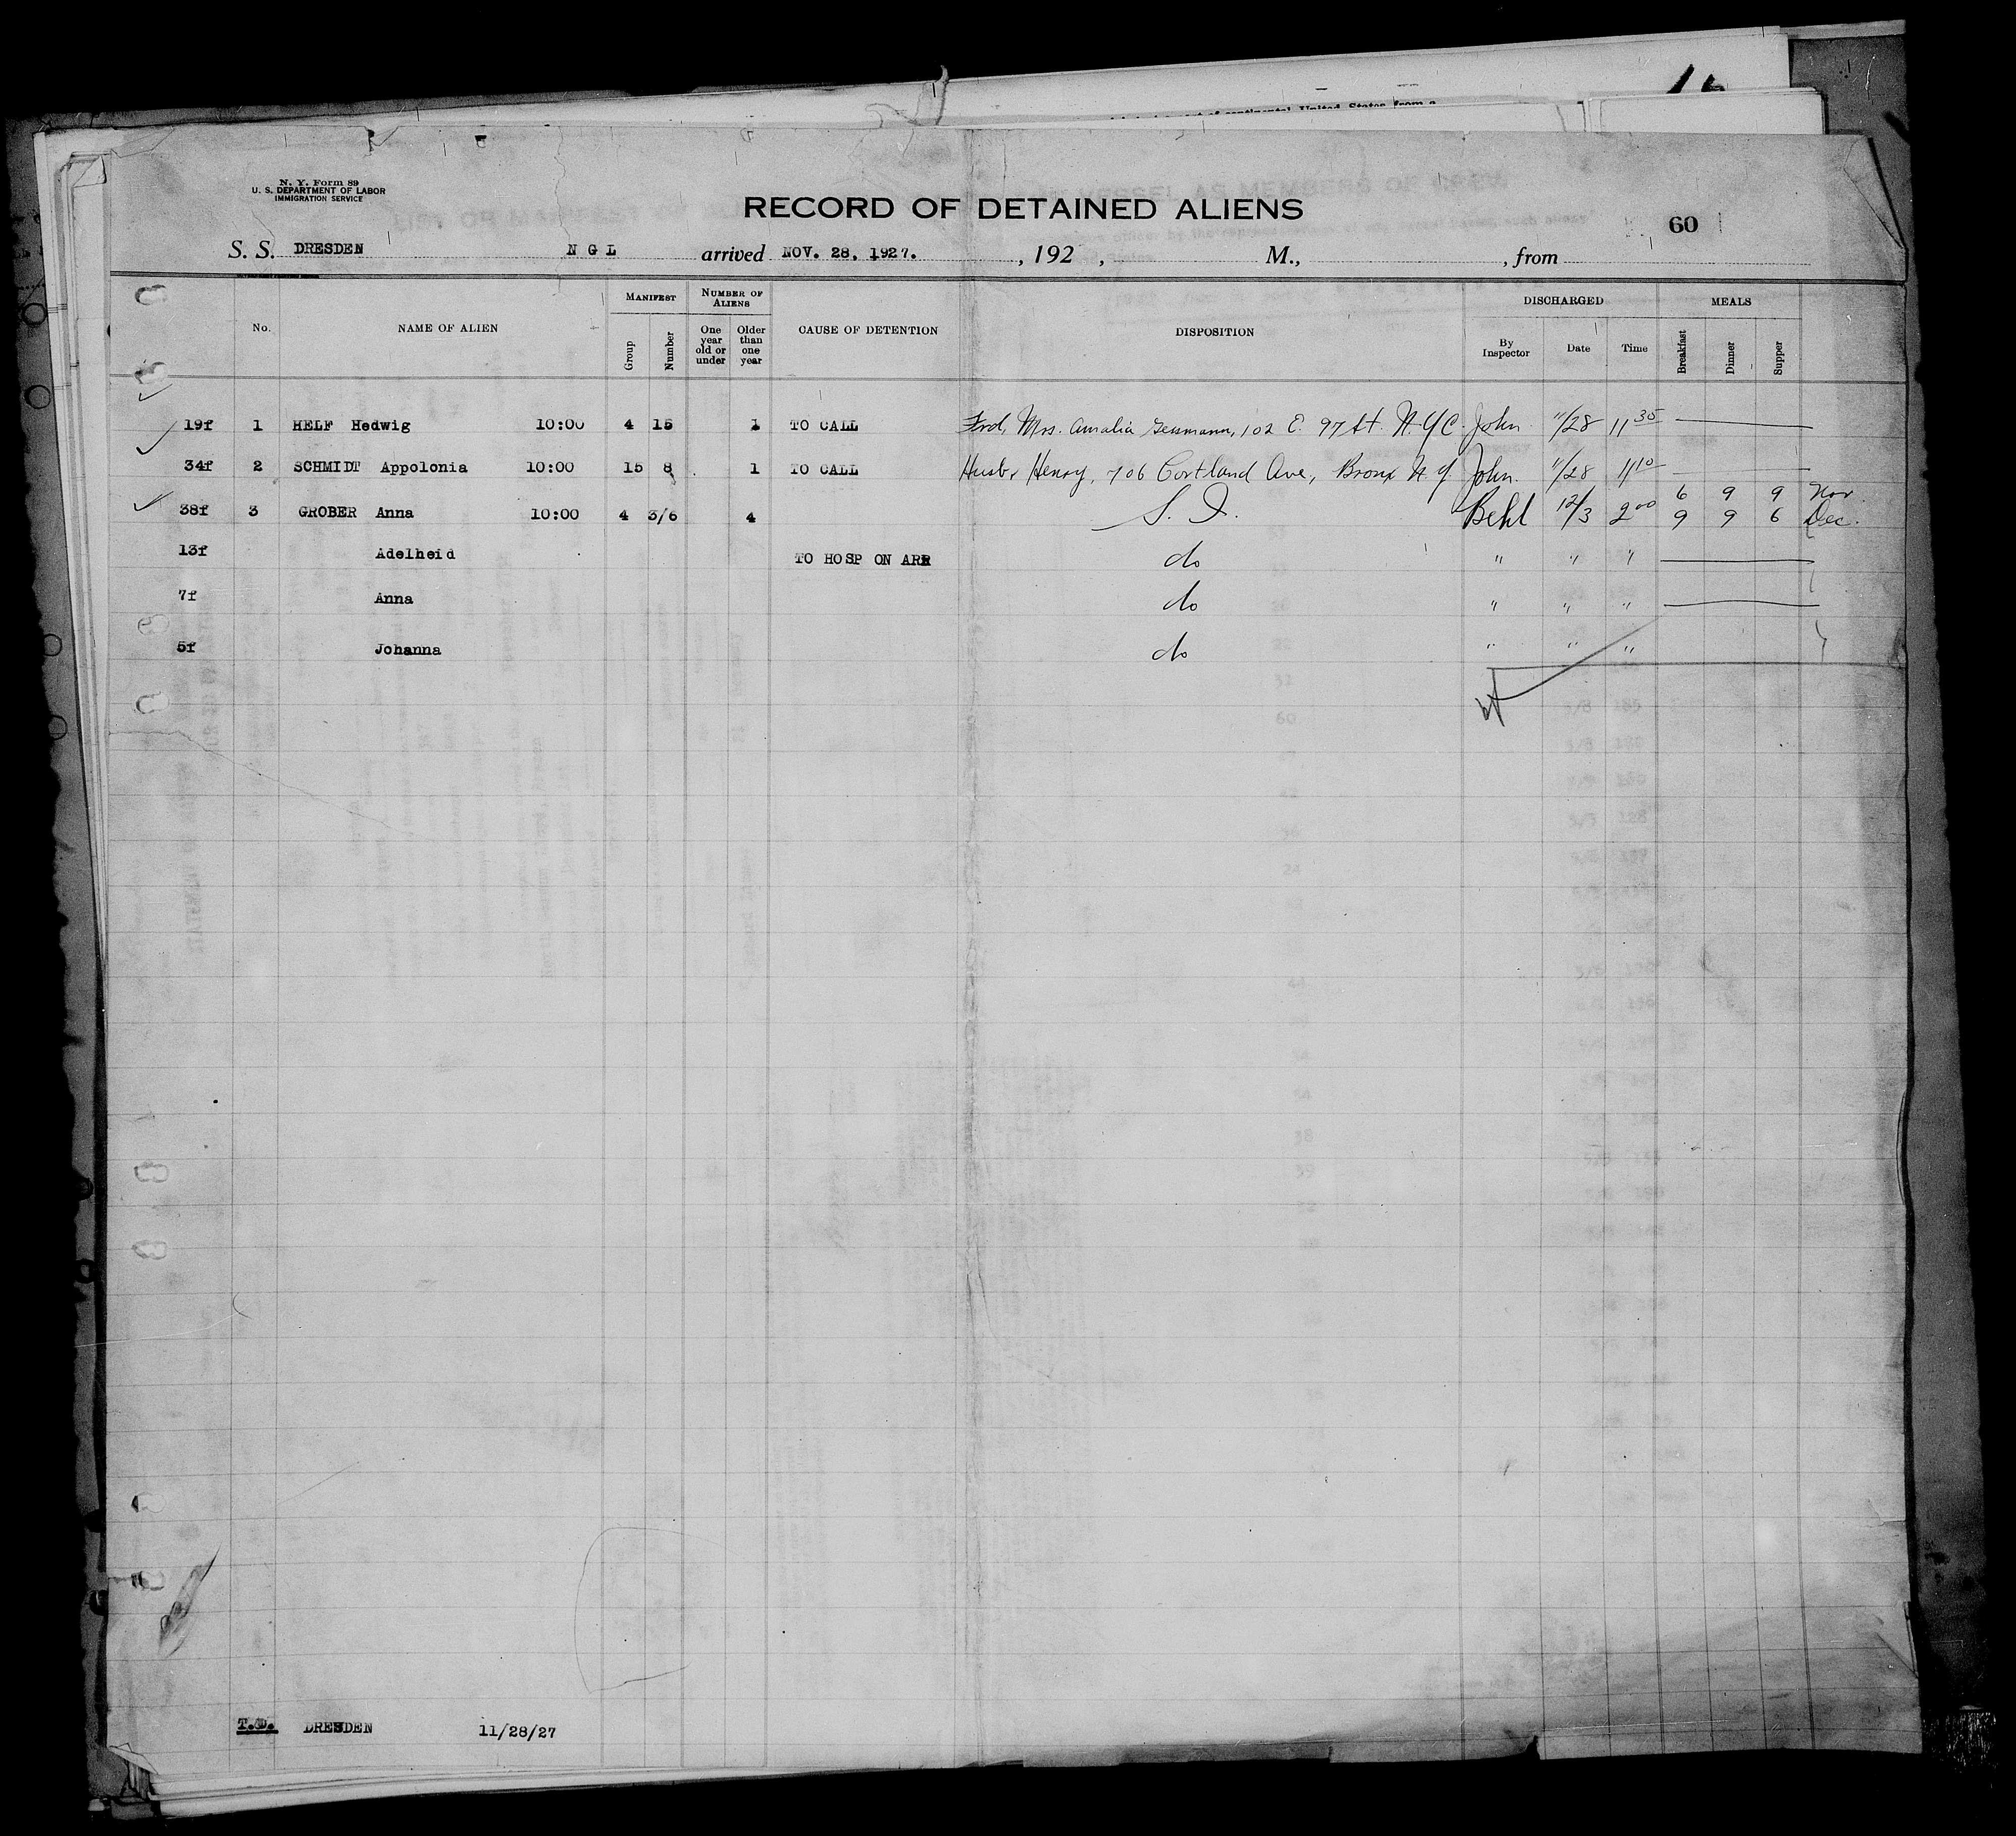 N. Y. Form 89
U. S. DEPARTMENT OF LABOR
IMMIGRATION SERVICE
RECORD OF DETAINED ALIENS
60
S. S. DRESDEN N G L arrived NOV. 28, 1927. , 192 , M., , from
No. NAME OF ALIEN MANIFEST NUMBER OF ALIENS CAUSE OF DETENTION DISPOSITION DISCHARGED MEALS
Group Number One year old or under Older than one year By Inspector Date Time Breakfast Dinner Supper
19f 1 HELF Hedwig 10:00 4 15 1 TO CALL Frd, Mrs. Amalia 102 E. 97 St. N.Y.C. John 11/28 11 35
34f 2 SCHMIDT Appolonia 10:00 15 8 1 TO CALL Husb, Henry, 706 Cortland Ave, Bronx N.Y John. 11/28 11 10
38f 3 GROBER Anna 10:00 4 3/6 4 S. I. Behl 12/3 2 00 6 9 9 Nov.
9 9 6 Dec.
13f Adelheid TO HOSP ON ARR do " " "
7f Anna do " " "
5f Johanna do " " "
T.D. DRESDEN 11/28/27